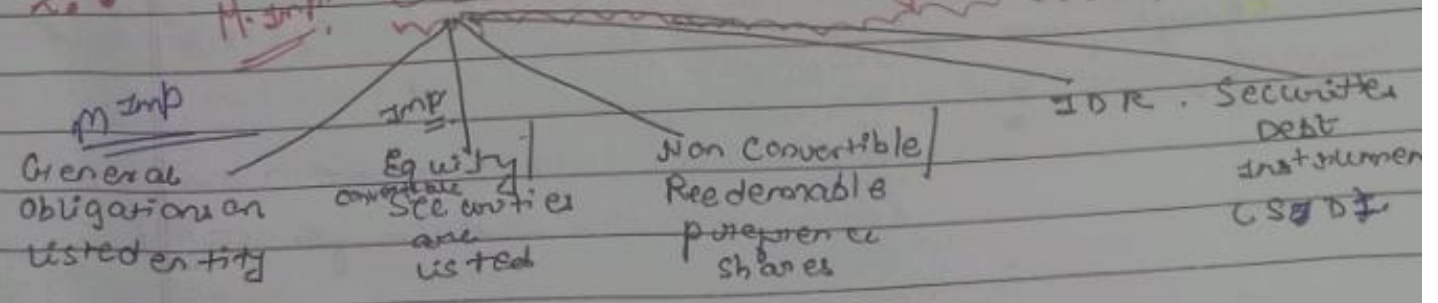 M. Imp.
M Imp
General
Obligations on
Listed entity
Imp
Equity/
Securities
are
listed
Non Convertible/
Reedemable
preference
shares
IDR.
Securities
Debt
Instrumen